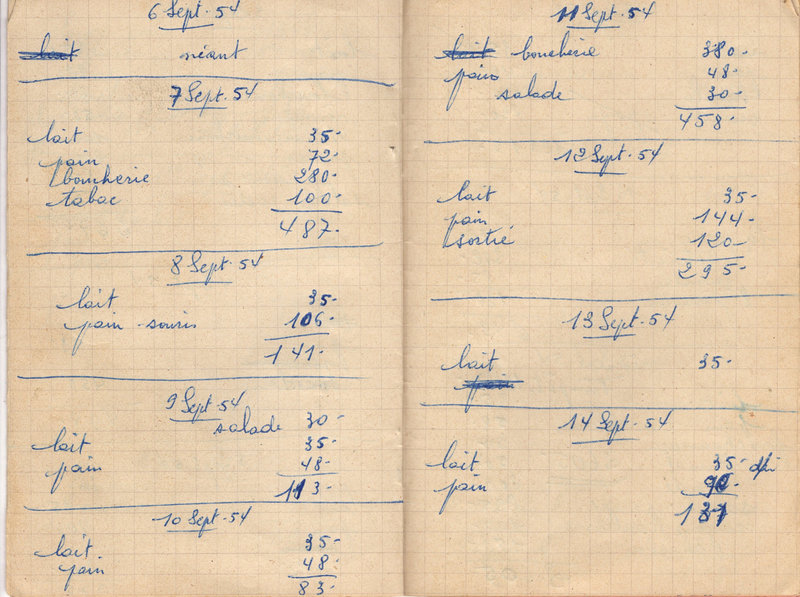 6 Sept. 54
lait néant
7 Sept. 54
lait 35-
pain 72-
boucherie 280-
tabac 100-
487-
8 Sept. 54
lait 35-
pain - souris 106-
141-
9 Sept. 54
salade 30-
lait 35-
pain 48-
113-
10 Sept. 54
lait. 35-
pain 48-
83-
11 Sept. 54
lait boucherie 380-
pain 48-
salade 30-
458-
12 Sept. 54
lait 35-
pain 144-
sortié 120-
295-
13 Sept. 54
lait 35-
pain
14 Sept. 54
lait 35-
pain